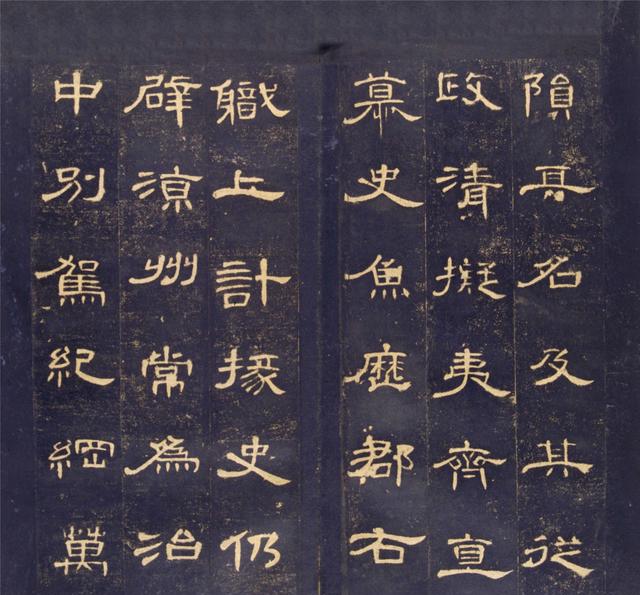 隕其名及其從
政清擬夷齊直
慕史魚歷郡右
職上計掾史仍
辟涼州常為治
中別駕紀綱萬